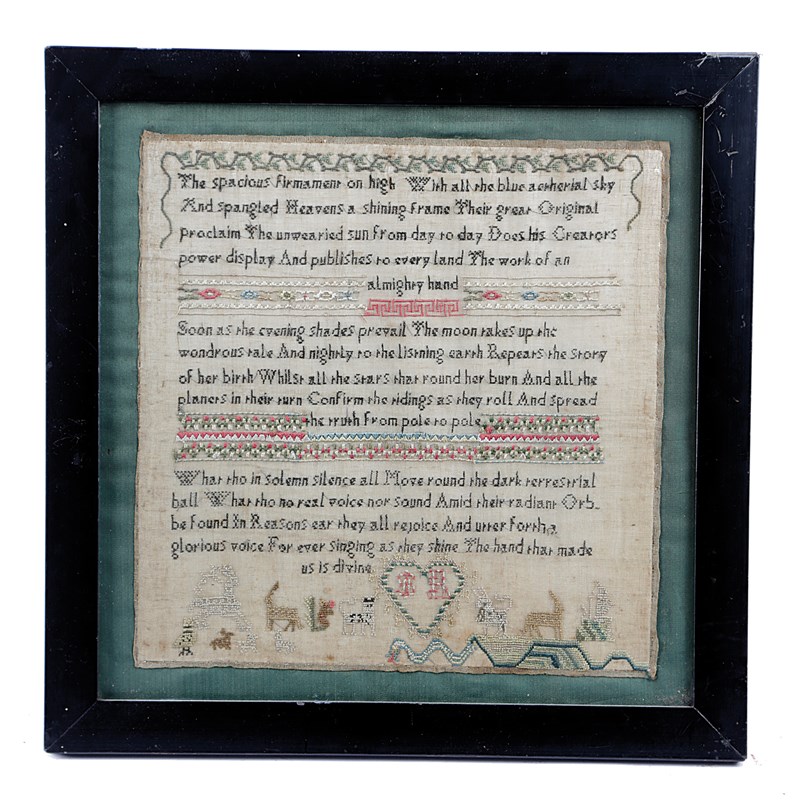 The spacious firmament on high With all the blue aetherial sky
And spangled Heavens a shining frame Their great Original
proclaim The unwearied sun from day to day Does his Creators
power display And publishes to every land The work of an
almighty hand
Soon as the evening shades prevail The moon takes up the
wondrous tale And nightly to the listning earth Repeats the story
of her birth Whilst all the stars that round her burn And all the
planets in their turn Confirm the tidings as they roll And spread
the truth from pole to pole
What tho in solemn silence all Move round the dark terrestrial
ball What tho no real voice nor sound Amid their radiant Orbs
be found In Reasons ear they all rejoice And utter forth a
glorious voice For ever singing as they shine The hand that made
us is divine